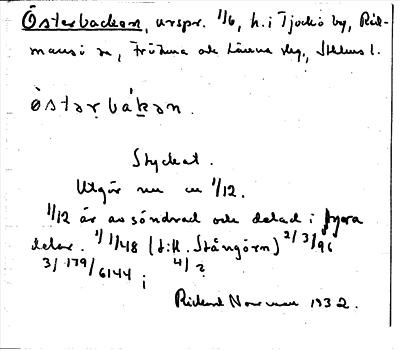 Österbackan, urspr. 1/6, h. i Tjockö by, Råd-
mansö sn, Frötuna och Länna skg., Sthlms l.
östərbákan.
Styckat.
Utgör nu en 1/12.
1/12 är avsöndrad och delad i fyra
delar. 1/ 1/48 (till Stångörn) 2/ 3/96
3/ 179/6144 i 4/ ?
Rickard 1932.